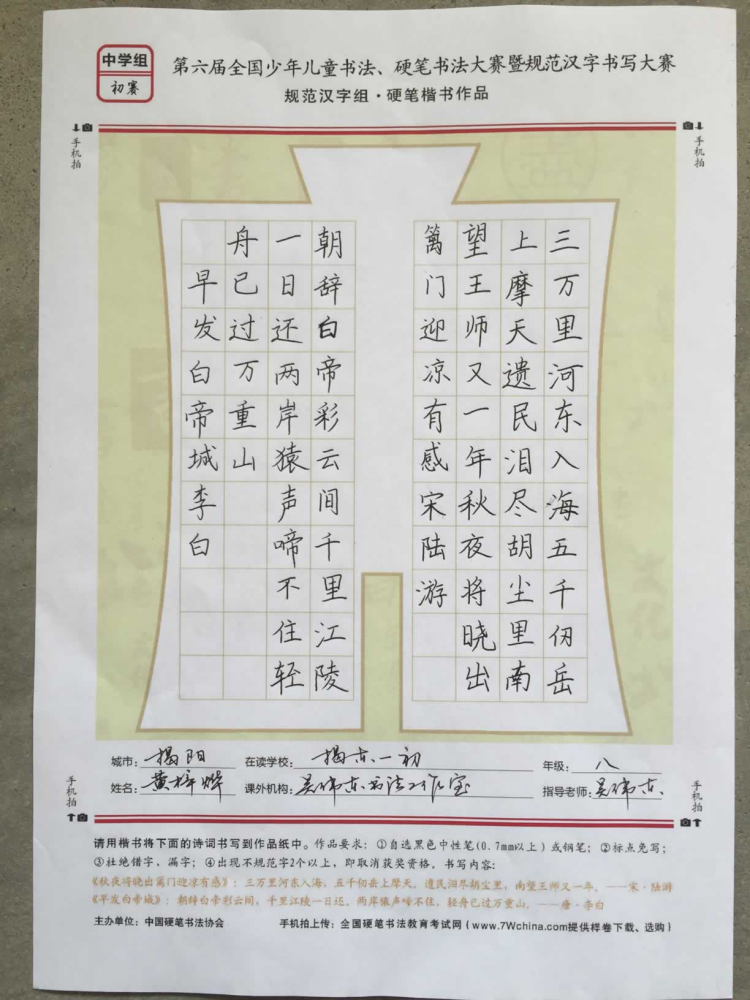 中学组
初赛
第六届全国少年儿童书法、硬笔书法大赛暨规范汉字书写大赛
规范汉字组·硬笔楷书作品
手机拍
手机拍
三万里河东入海五千仞岳
上摩天遗民泪尽胡尘里南
望王师又一年秋夜将晓出
篱门迎凉有感宋陆游
朝辞白帝彩云间千里江陵
一日还两岸猿声啼不住轻
舟已过万重山
早发白帝城李白
城市：揭阳 在读学校：揭东一初 年级：八
姓名：黄梓烨 课外机构：吴伟东书法工作室 指导老师：吴伟东
手机拍
手机拍
请用楷书将下面的诗词书写到作品纸中。作品要求：①自选黑色中性笔(0.7mm以上）或钢笔；②标点免写；
③杜绝错字，漏字；④出现不规范字2个以上，即取消获奖资格。书写内容：
《秋夜将晓出篱门迎凉有感》：三万里河东入海，五千仞岳上摩天。遗民泪尽胡尘里，南望王师又一年。——宋·陆游
《早发白帝城》：朝辞白帝彩云间，千里江陵一日还。两岸猿声啼不住，轻舟已过万重山。——唐·李白
主办单位：中国硬笔书法协会 手机拍上传：全国硬笔书法教育考试网（www.7Wchina.com提供样卷下载、选购）